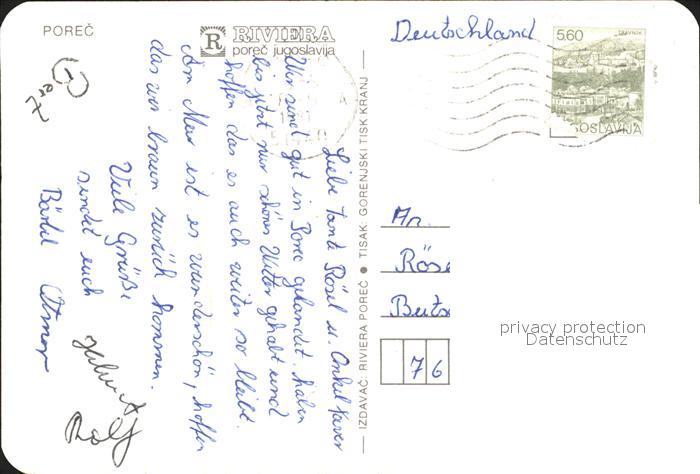 POREČ
R RIVIERA
poreč jugoslavija
Liebe Tante Rösel u. Onkel Xaver
Wir sind gut in Porec gelandet. Haben
bis jetzt nur schönes Wetter gehabt und
hoffen das es auch weiter so bleibt.
Am Meer ist es wunderschön, hoffen
das wir braun zurück kommen.
Viele Grüße
sendet euch
Bärbel Otmar
Rolf
IZDAVAČ RIVIERA POREČ ● TISAK GORENJSKI TISK KRANJ
Deutschland
5.60
TRAVNIK
OSLAVIJA
An
Röse
76
privacy protection
Datenschutz